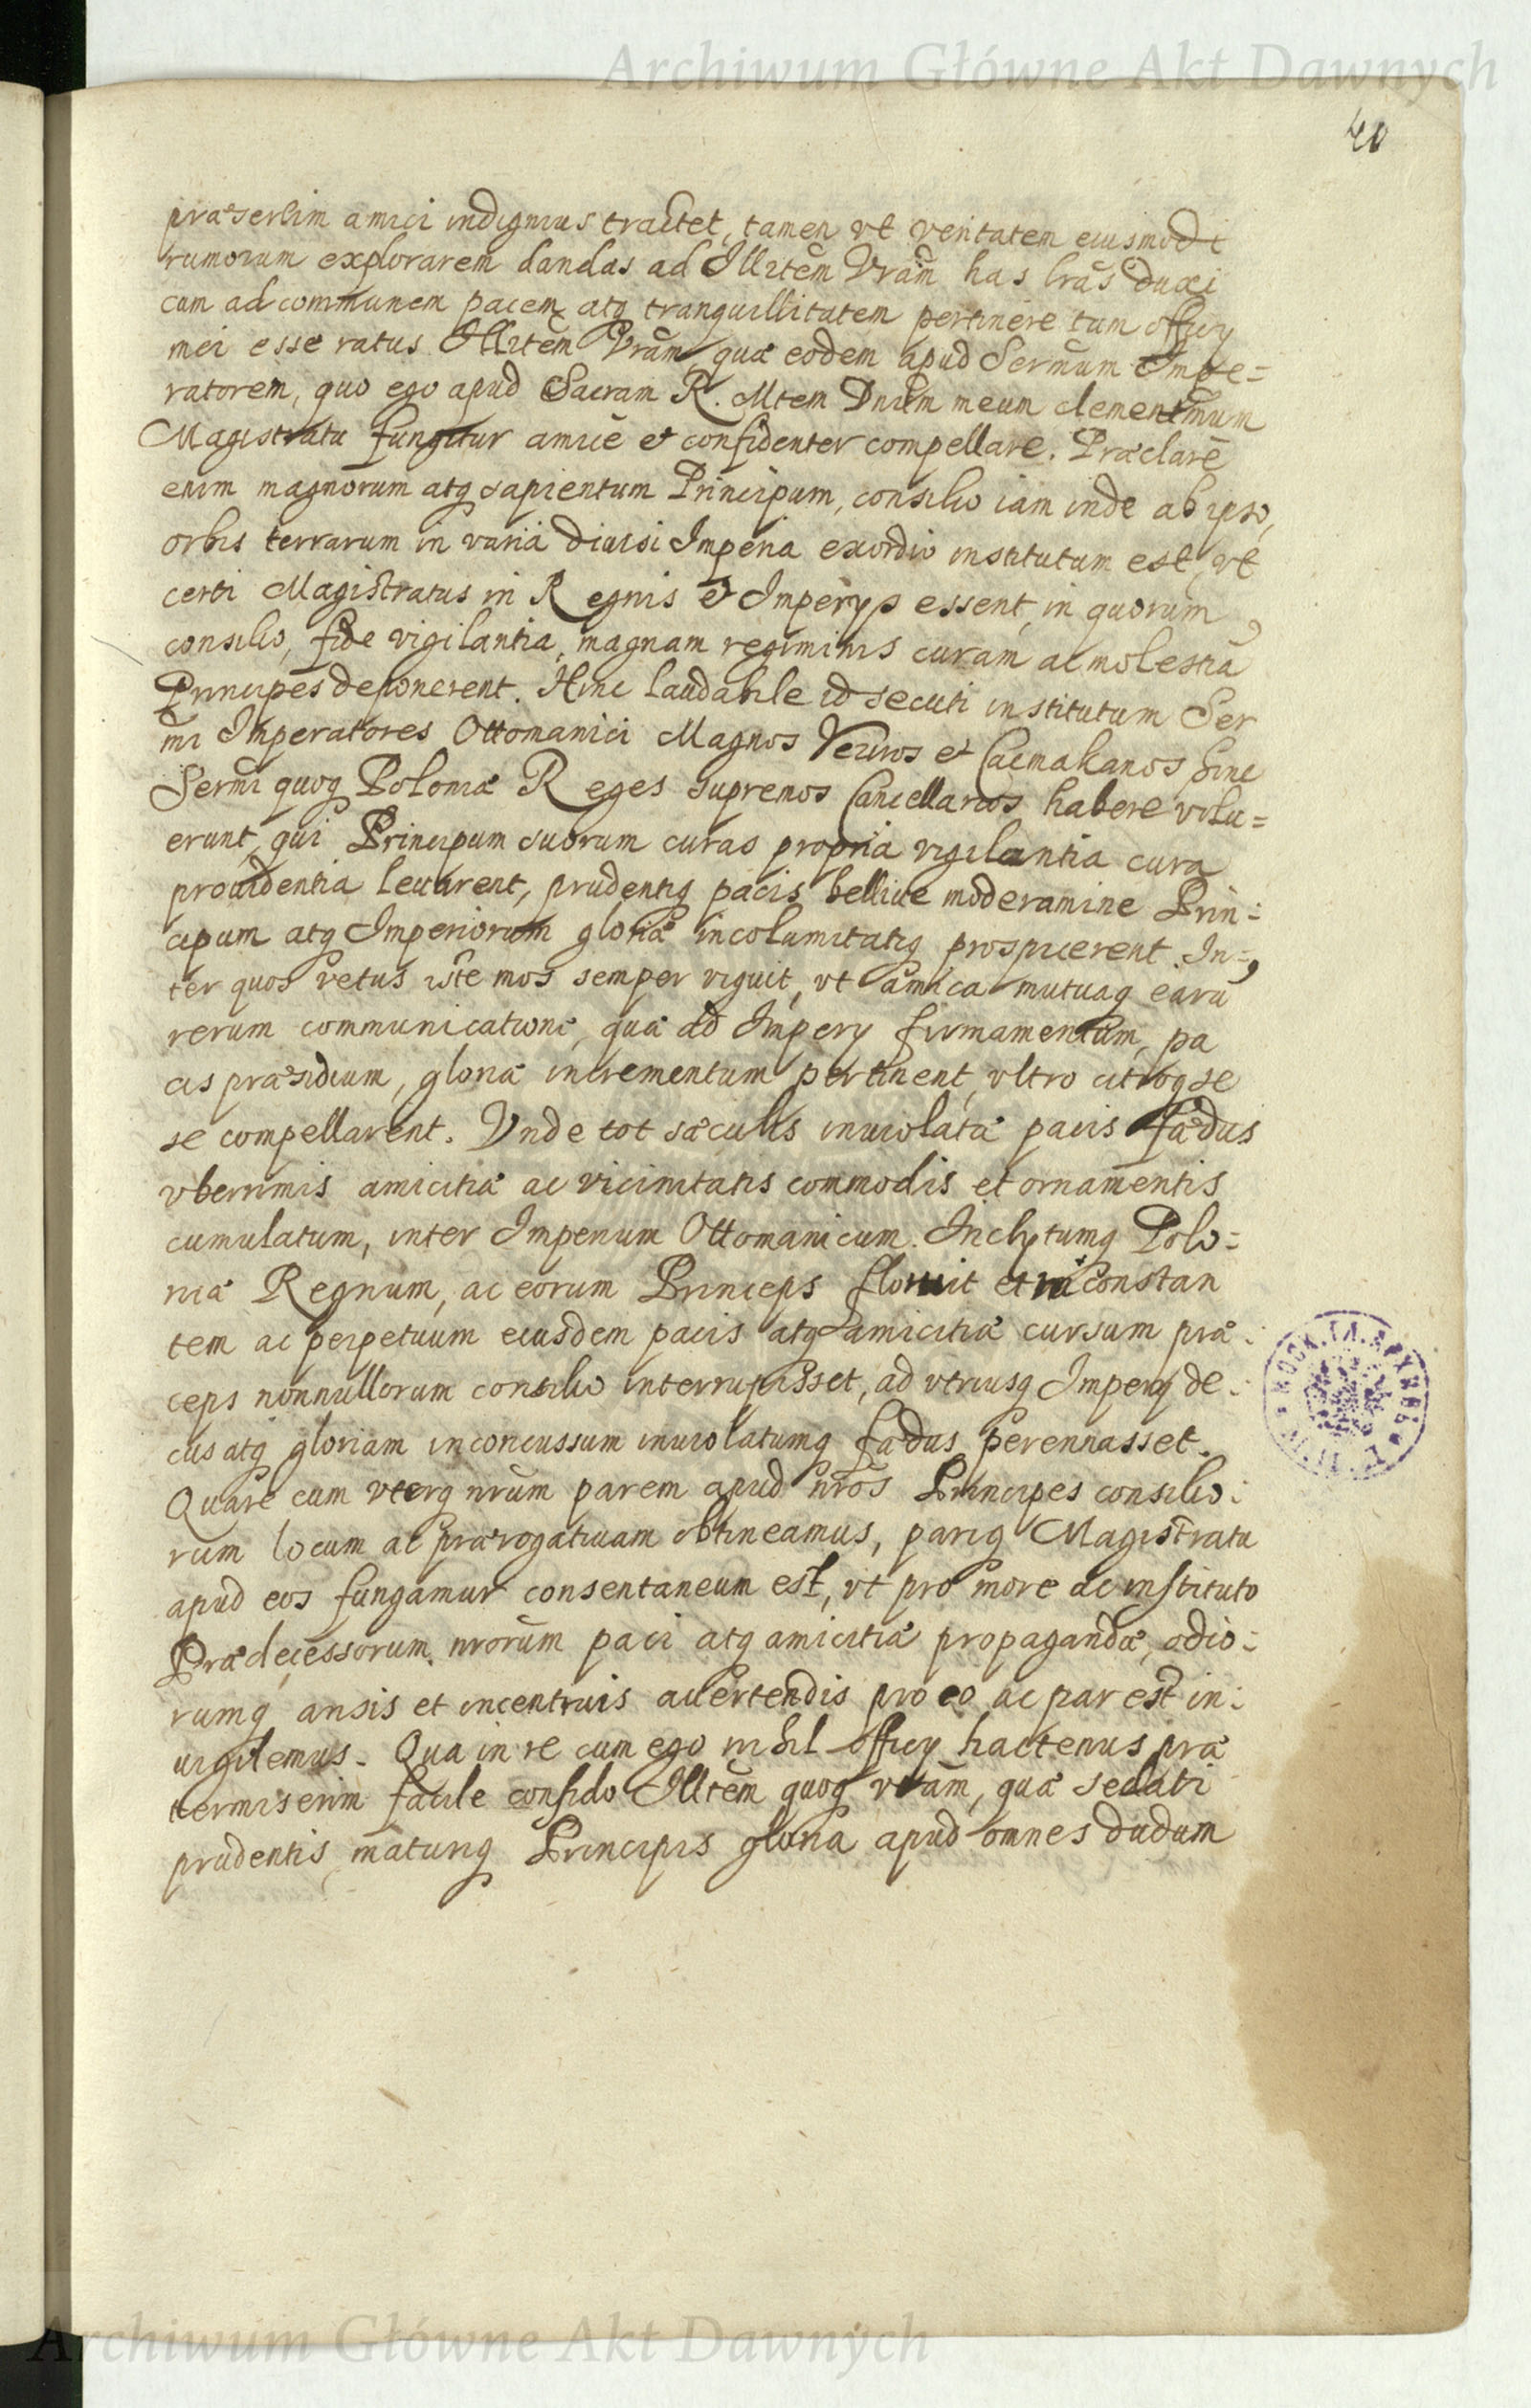 Archiwum Główne Akt Dawnych
40
præsertim amici indignius tractet, tamen vt veritatem eiusmodi
rumorum explorarem dandas ad Illrtem Vrãm has lrãs duxi
cum ad communem pacem atq tranquillitatem pertinere tum officy
mei esse ratus Illrtẽm Vrãm, quæ eodem apud Sermũm Impe=
ratorem, quo ego apud Sacram R. Mtem Dnũm meum clementmum
Magistratu fungitur amice et confidenter compellare. Præclare
enim magnorum atq sapientum Principum, consilio iam inde ab ipso,
orbis terrarum in varia diuisi Imperia exordio institutum est, vt
certi Magistratus in Regnis et Imperys essent, in quorum
consilio, fide vigilantia, magnam regiminis curam ac molestiã
Principes deponerent. Hinc laudabile id secuti institutum Ser
mi Imperatores Ottomanici Magnos Veziros et Caemakanos hinc
Sermi quoq Poloniæ Reges supremos Cancellarios habere volu=
erunt, qui Principum suorum curas propria vigilantia cura
prouidentia leuarent, prudentiq pacis belliue moderamine Prin=
cipum atq Imperiorum gloriæ incolumitatiq prospicerent. In=
ter quos vetus iste mos semper viguit, vt amica mutuaq earũ
rerum communicatione, quæ ad Impery firmamentum, pa
cis præsidium, gloriæ incrementum pertinent, vltro citroq se
se compellarent. Vnde tot sæculis inuiolatæ pacis fædus
vberrimis amicitiæ ac vicinitatis commodis et ornamentis
cumulatum, inter Imperium Ottomanicum. Inclytumq Polo=
niæ Regnum, ac eorum Princeps floruit et ni constan
tem ac perpetuum eiusdem pacis atq amicitiæ cursum præ=
ceps nonnullorum consilio interrupisset, ad vtriusq Impery de=
cus atq gloriam inconcussum inuiolatumq fædus perennasset.
Quare cum vterq nrũm parem apud nrõs Principes consilio=
rum locum ac prærogatiuam obtineamus, pariq Magistratu
apud eos fungamur consentaneum est, vt pro more ac instituto
Prædecessorum nrorũm paci atq amicitiæ propagandæ, odio=
rumq ansis et incentiuis auertendis pro eo ac par est in=
uigilemus. Qua in re cum ego nihil officy hactenus præ
termiserim facile confido Illtẽm quoq vrãm, quæ sedati
prudentis, maturiq Principis gloria apud omnes dudum
Archiwum Główne Akt Dawnych